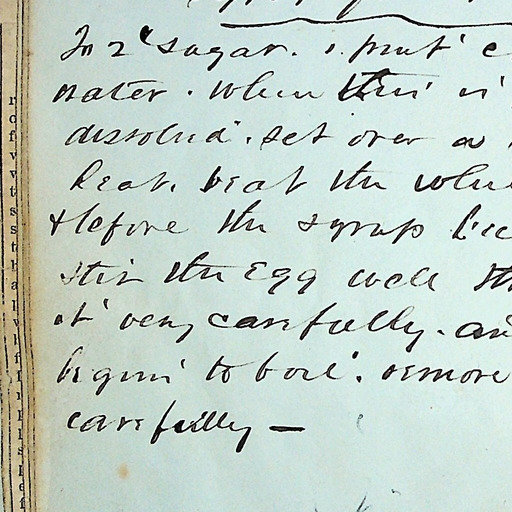 In 2 lb sugar. 1. pint
water. When this is
dissolved. set over a
heat. beat the white
& before the syrup
stir the Egg well
it very carefully. an
begins to boil. remove
carefully —